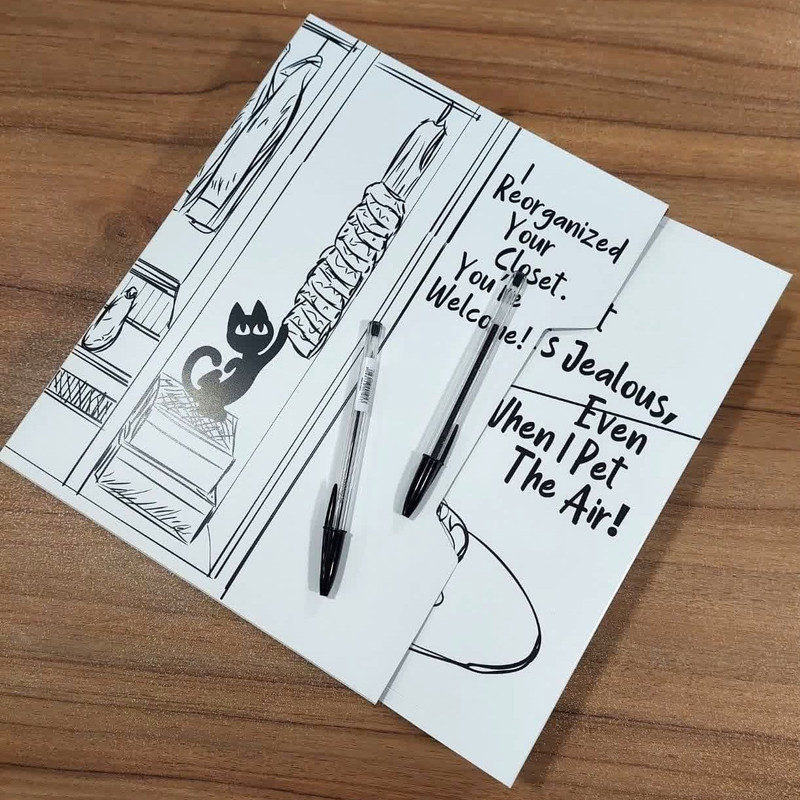 I
Reorganized
Your
Closet.
You're
Welcome!
t
s Jealous,
Even
When I Pet
The Air!